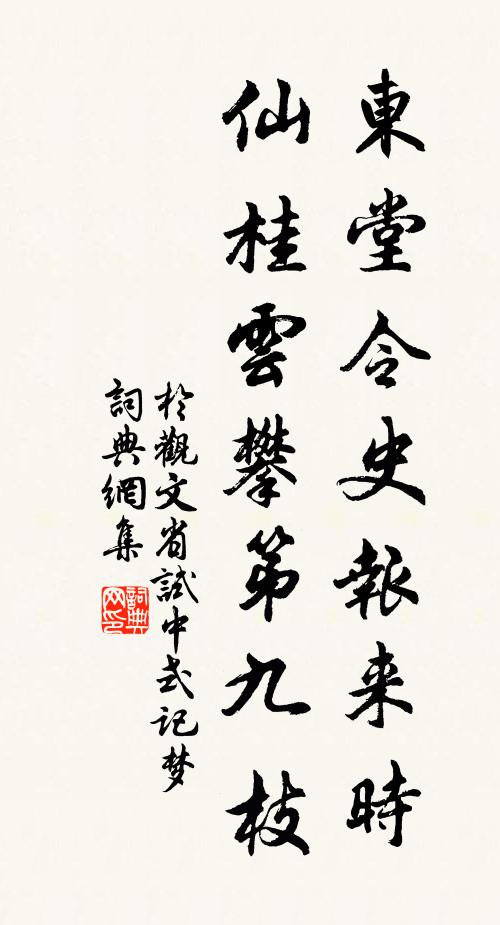 東堂令史報来時
仙桂雲攀第九枝
於觀文省試中式记梦
詞典網集
詞典
网印